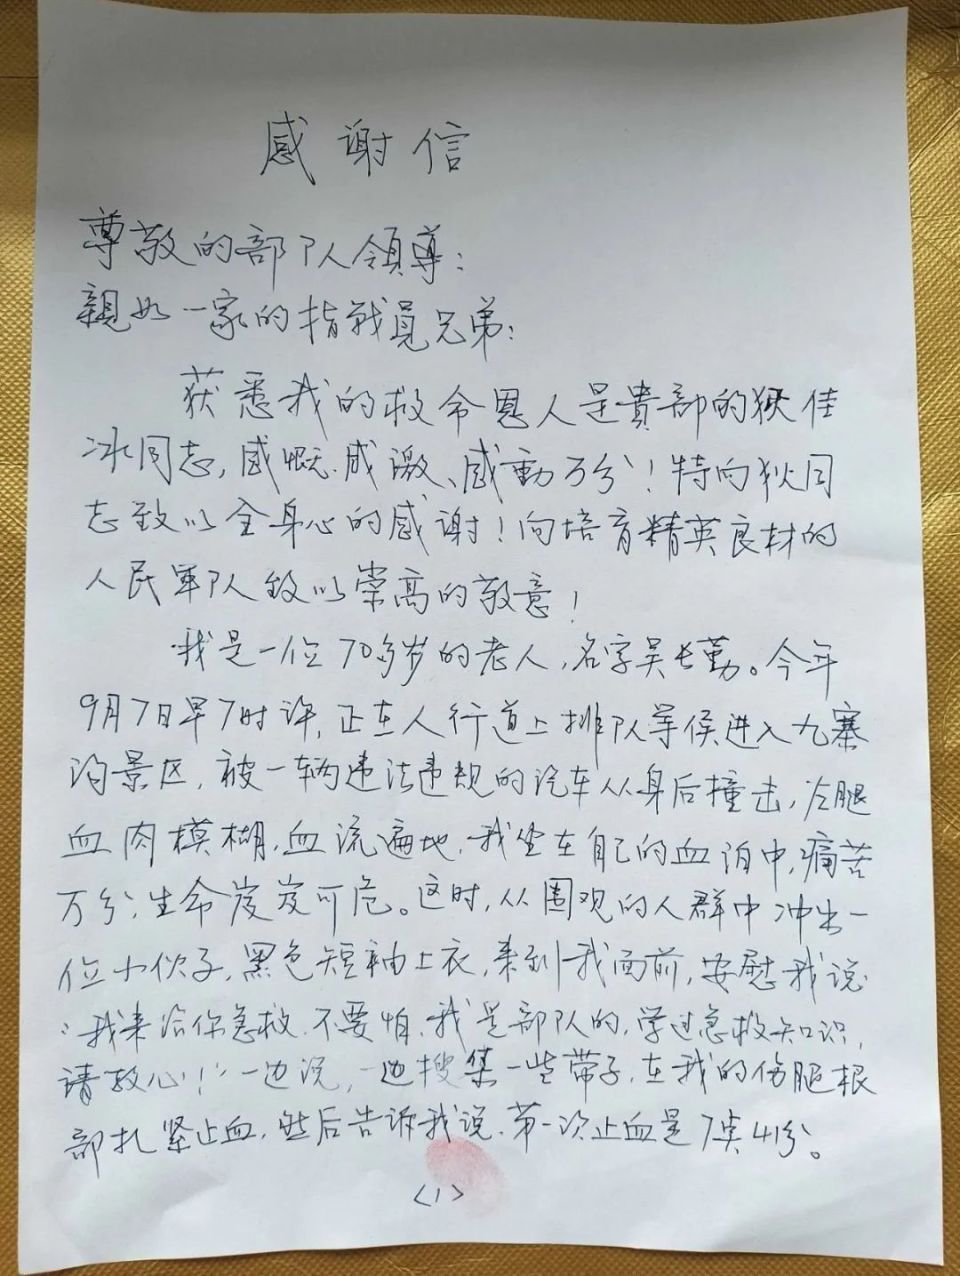 感谢信
尊敬的部队领导：
親如一家的指战員兄弟：
获悉我的救命恩人是貴部的狄佳
冰同志，感慨、感激、感動万分！特向狄同
志致以全身心的感谢！向培育精英良材的
人民軍队致以崇高的敬意！
我是一位70多岁的老人，名字吴长勤。今年
9月7日早7时许，正在人行道上排队等候进入九寨
沟景区，被一辆违法违规的汽车从身后撞击，左腿
血肉模糊，血流遍地，我坐在自己的血泊中，痛苦
万分，生命岌岌可危。这时，从围观的人群中冲出一
位小伙子，黑色短袖上衣，来到我面前，安慰我说
：我来给你急救，不要怕，我是部队的，学过急救知识，
请放心！”一边说，一边搜集一些带子，在我的伤腿根
部扎紧止血，然后告诉我说，第一次止血是7点41分。
<1>